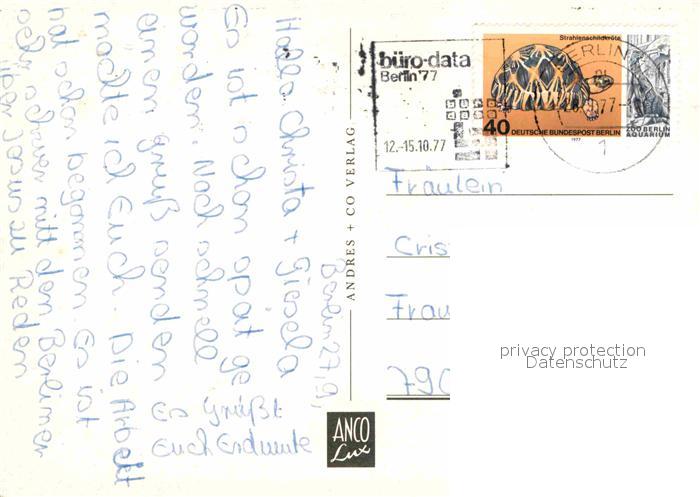 Berlin 27,9,
Hallo Christa + Giesela
Es ist schon spät ge
worden. Noch schnell
einen gruß senden
möchte ich Euch. Die Arbeit
hat schon begonnen. Es ist
sehr schwer mit den Berliner
über Jesus zu Reden
Es Grüßt
Euch Erdmute
ANDRES + CO VERLAG
ANCO
Lux
büro-data
Berlin '77
12.-15.10.77
BERLIN
1
Strahlenschildkröte
40
DEUTSCHE BUNDESPOST BERLIN
1977
ZOO BERLIN
AQUARIUM
Fräulein
Cris
Frau
790
privacy protection
Datenschutz